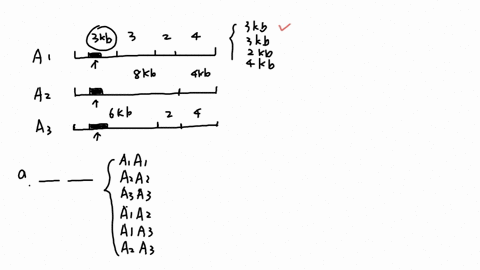 A1 3kb 3 2 4
3kb ✓
3kb
2kb
4kb
A2 8kb 4kb
A3 6kb 2 4
a. __ __
A1 A1
A2 A2
A3 A3
A1 A2
A1 A3
A2 A3